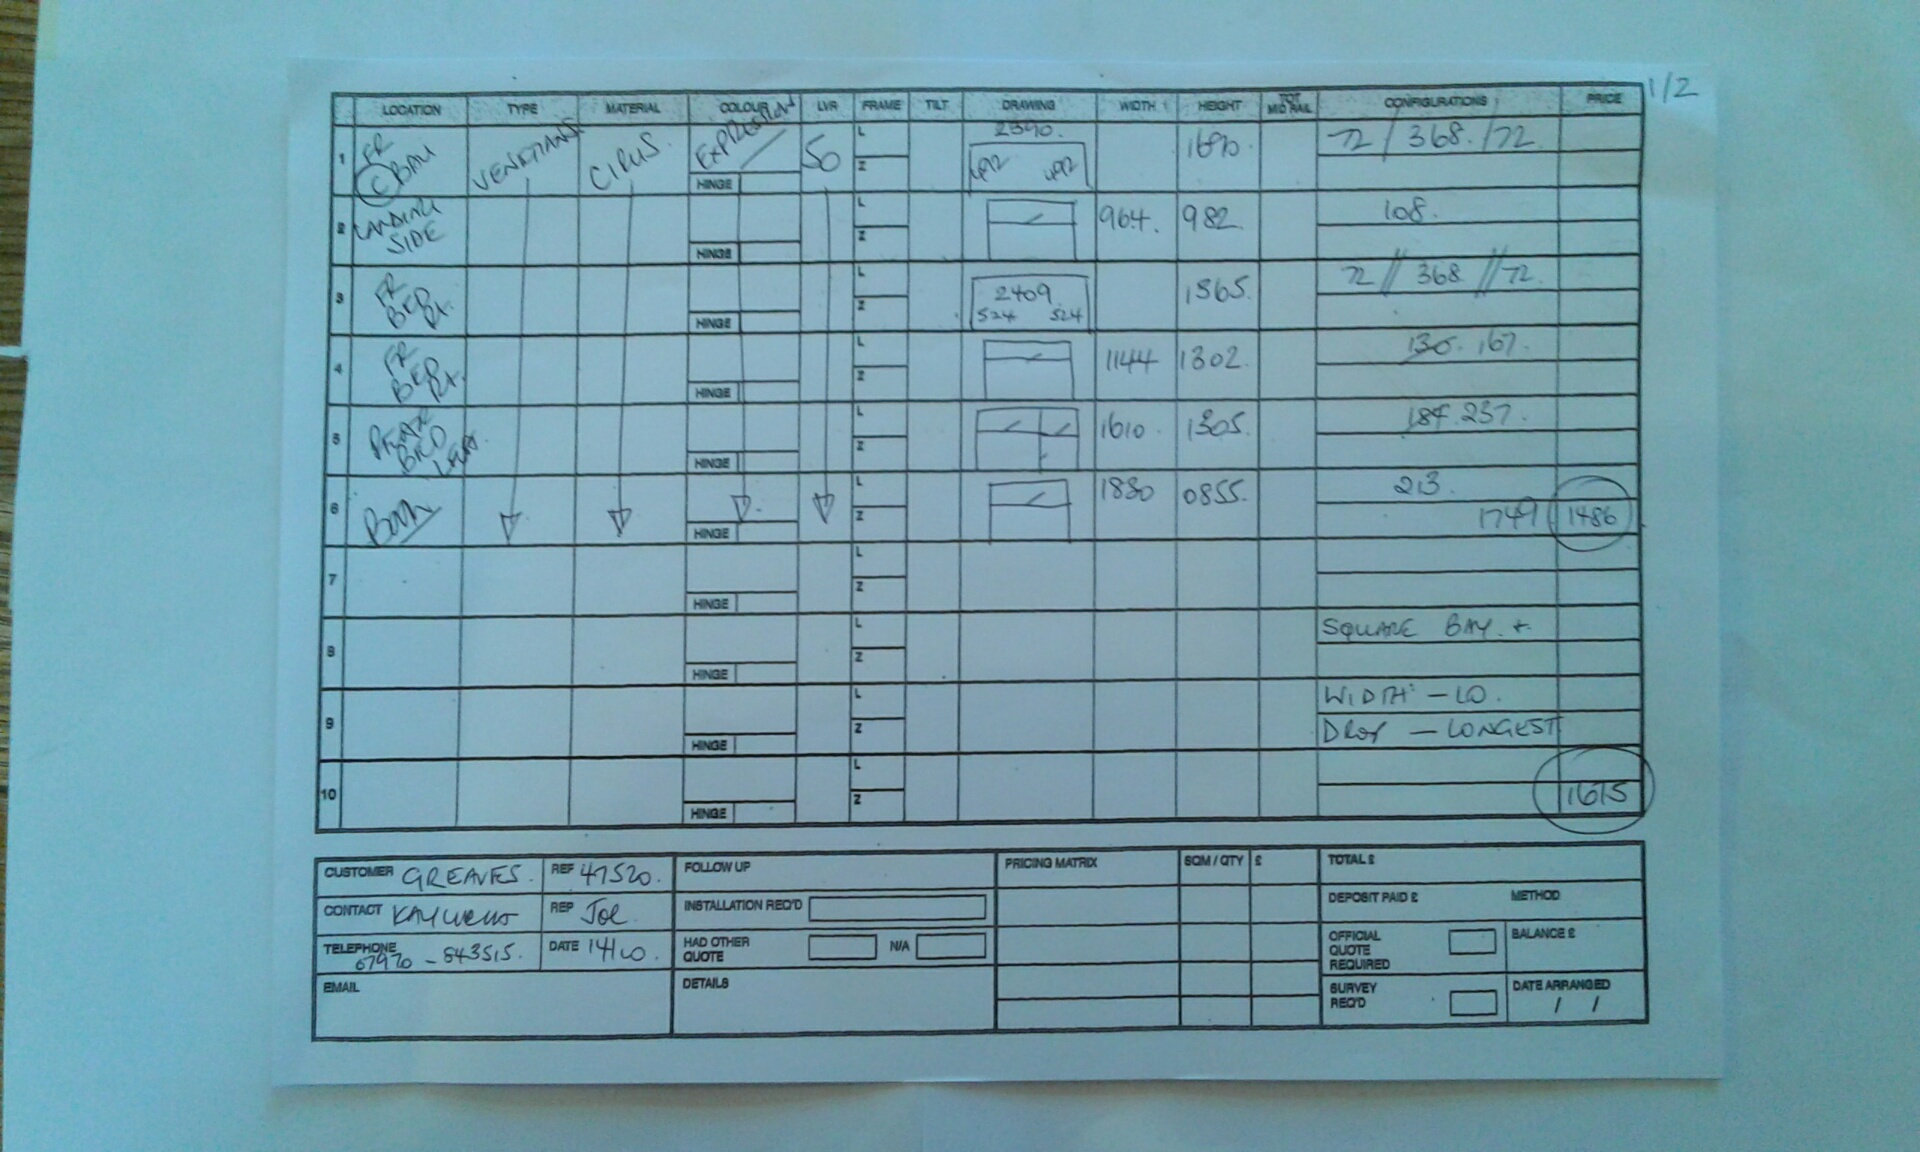 1/2
LOCATION TYPE MATERIAL COLOUR LVR FRAME TILT DRAWING WIDTH HEIGHT TOT MID RAIL CONFIGURATIONS PRICE
1 FR C BAY VENETIANS CIRUS EXPRESSION 50 L 2390. 1690. 72 / 368. / 72.
HINGE Z 492 492
2 LANDING SIDE L 964. 982. 108.
HINGE Z
3 FR BED Rt. L 2409 1365. 72 // 368 // 72.
HINGE Z 524 524
4 FR BED Rt. L 1144 1302. 130. 167.
HINGE Z
5 BED L 1610 1305. 184. 237.
HINGE Z
6 Bath L 1830 0855. 213.
HINGE Z 1749 1486
7 L
HINGE Z
8 L SQUARE BAY. +
HINGE Z
9 L WIDTH: - LO.
HINGE Z DROP - LONGEST
10 L
HINGE Z 1615
CUSTOMER GREAVES. REF 47520.
CONTACT REP Joe.
TELEPHONE 07970 - 843515. DATE 14/10.
EMAIL
FOLLOW UP
INSTALLATION REQ'D
HAD OTHER QUOTE N/A
DETAILS
PRICING MATRIX SQM / QTY £
TOTAL £
DEPOSIT PAID £ METHOD
OFFICIAL QUOTE REQUIRED BALANCE £
SURVEY REQ'D DATE ARRANGED
/ /